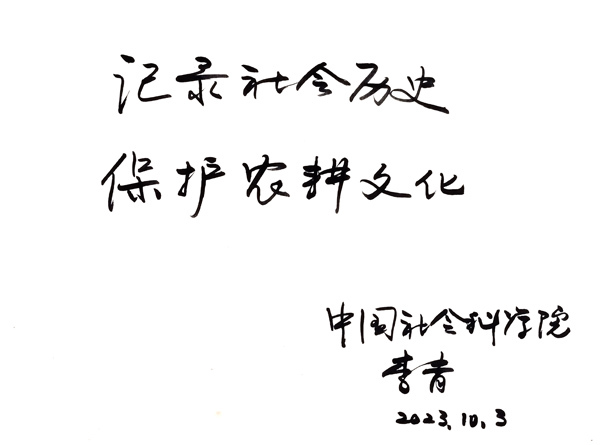 记录社会历史
保护农耕文化
中国社会科学院
李青
2023.10.3